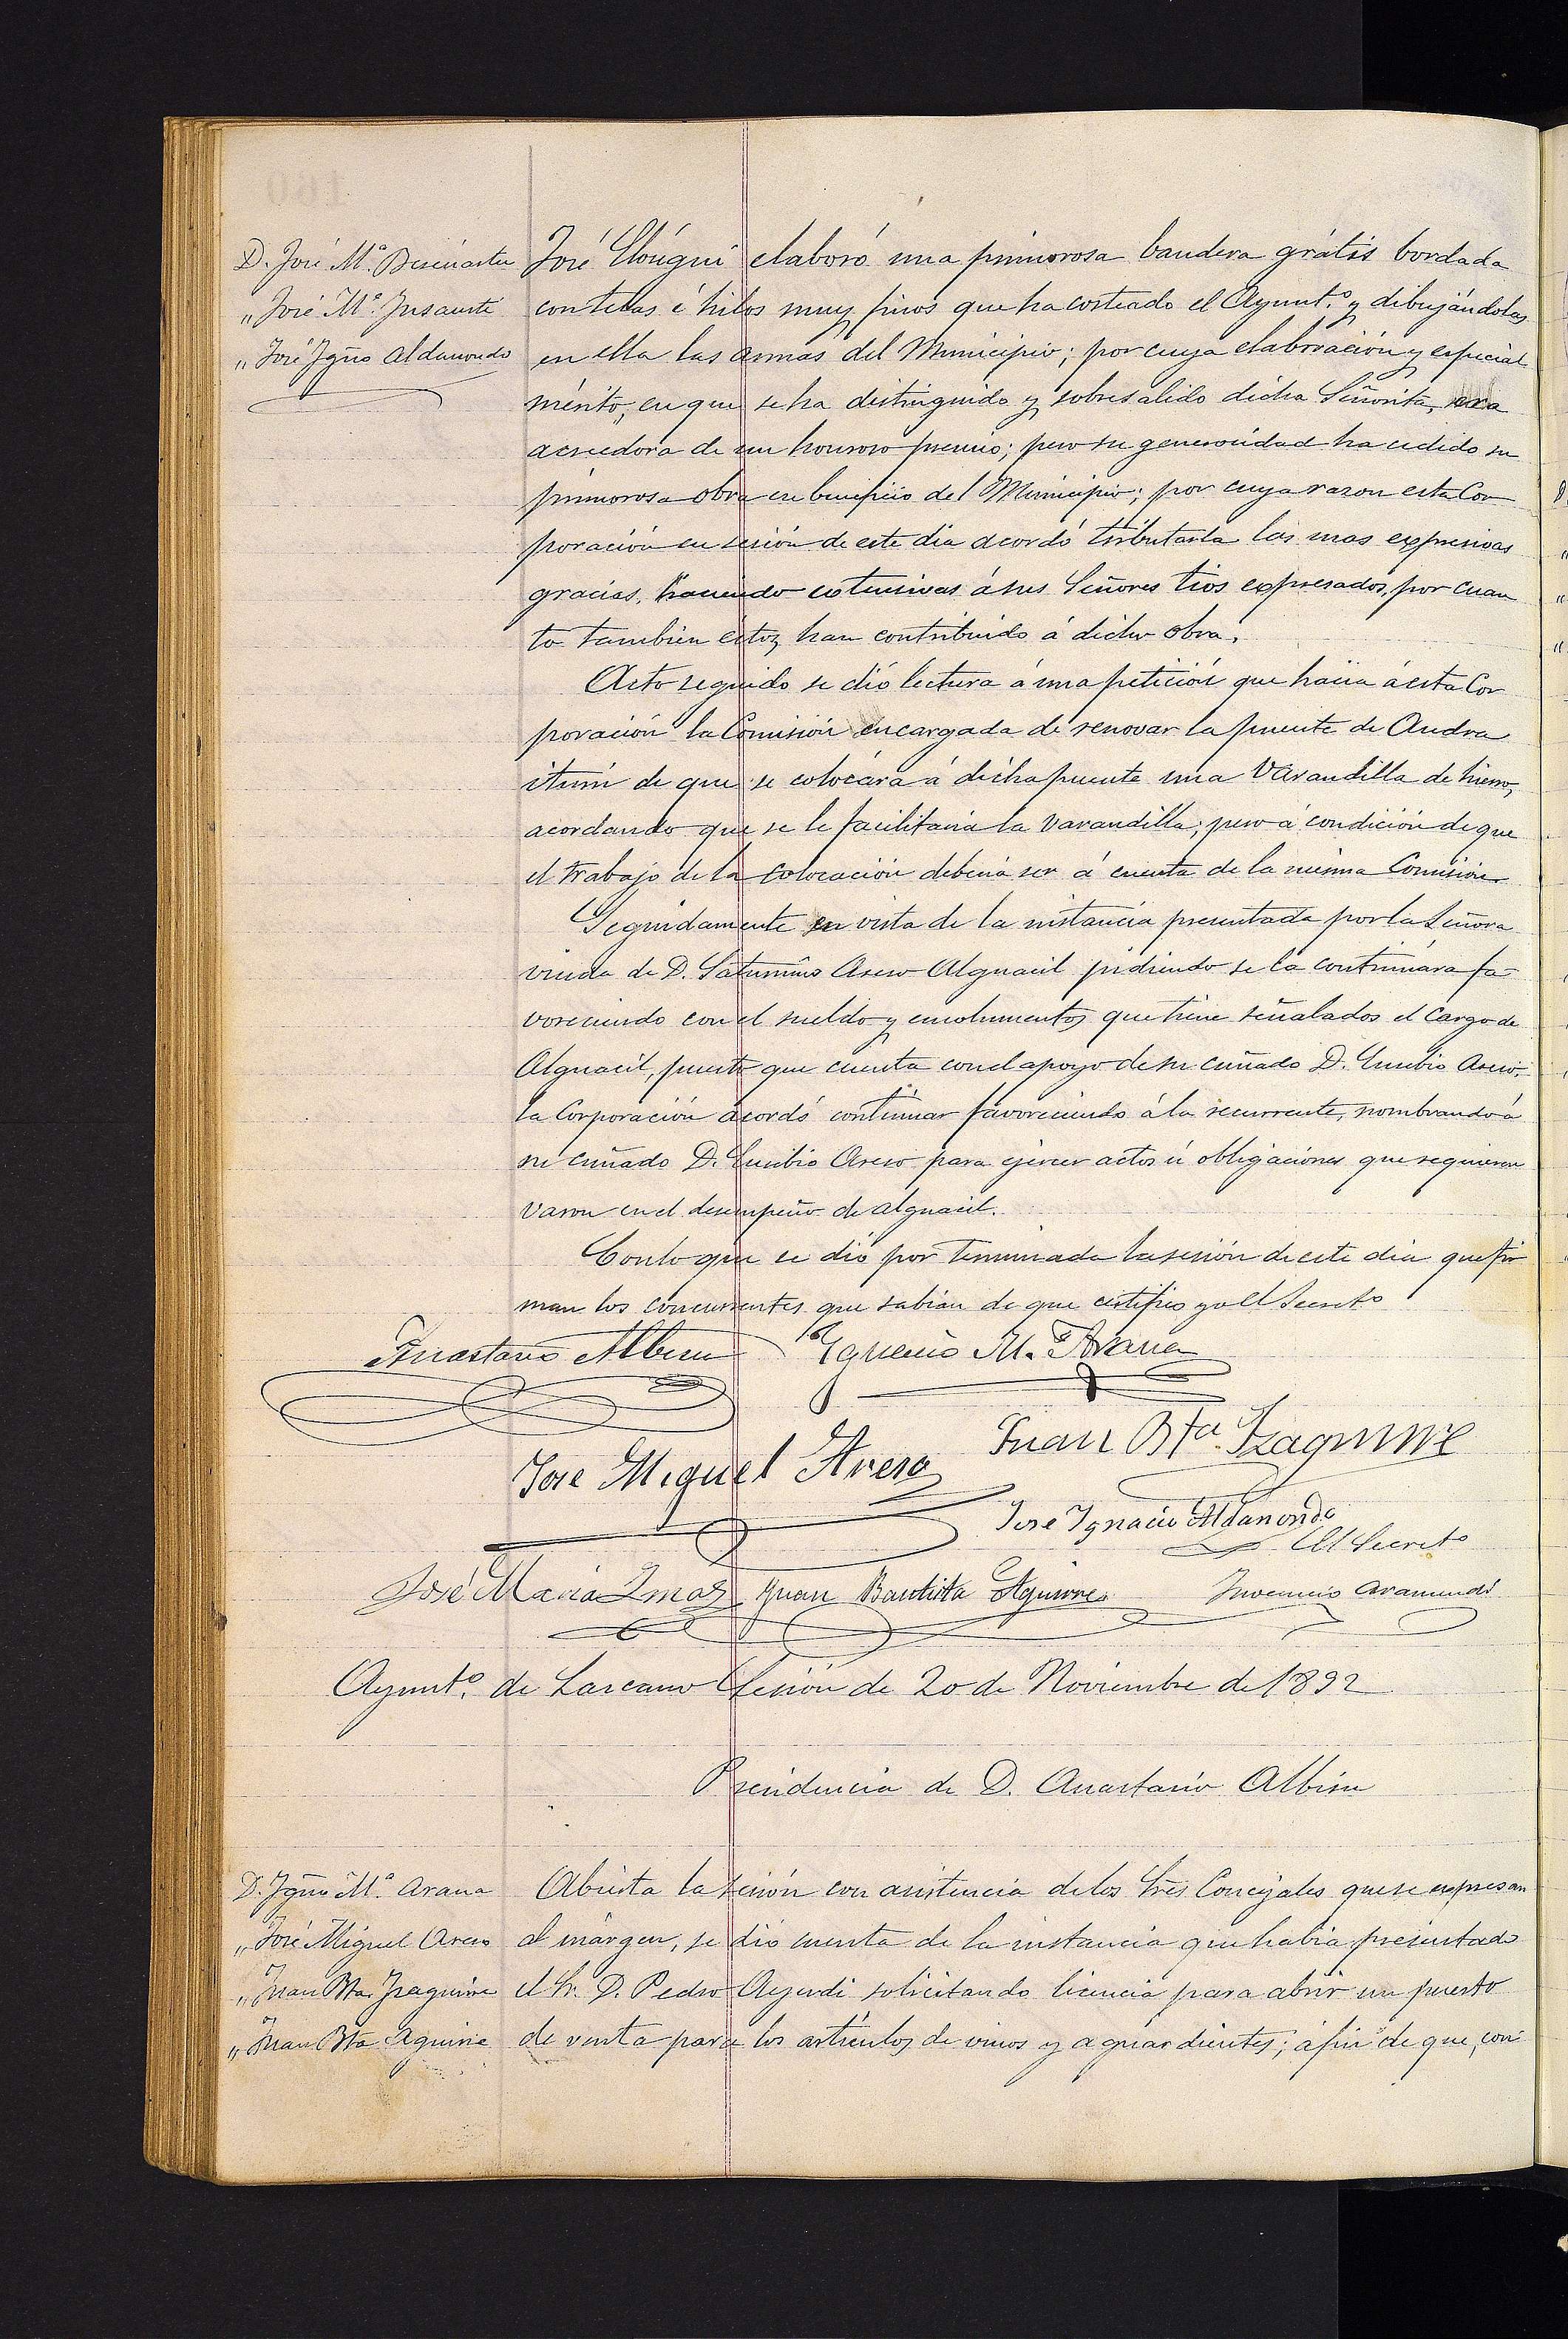 D. José M.ª Beseñartu
„ José M.ª Insausti
„ José Ygño Aldanondo
José Elósegui elaboró una primorosa bandera grátis bordada
con telas é hilos muy finos que ha costeado el Ayunt.º y dibujándolas
en ella las armas del Municipio; por cuya elaboración y especial
mérito, en que se ha distinguido y sobresalido dicha Señorita, era
acreedora de un honroso premio; pero su generosidad ha cedido su
primorosa obra en beneficio del Municipio; por cuya razon esta Cor
poración en sesión de este dia acordó tributarla las mas expresivas
gracias, haciendo extensivas á sus Señores tios expresados, por cuan
to tambien éstos han contribuido á dicha obra.
Acto seguido se dió lectura á una petición que hacia á esta Cor
poración la Comisión encargada de renovar la puente de Andra
iturri de que se colocára á dicha puente una Varandilla de hierro,
acordando que se le facilitaria la varandilla; pero á condición de que
el trabajo de la colocación deberia ser á cuenta de la misma Comisión
Seguidamente en vista de la instancia presentada por la Señora
viuda de D. Saturnino Areso Alguacil pidiendo se la continuára fa-
voreciendo con el sueldo y emolumentos que tiene señalados el Cargo de
Alguacil, puesto que cuenta con el apoyo de su cuñado D. Eusebio Areso;
la Corporación acordó continuar favoreciendo á la recurrente, nombrando á
su cuñado D. Eusebio Areso para ejercer actos ú obligaciones que requieren
varon en el desempeño de alguacil.
Con lo que se dió por terminada la sesión de este dia que fir
man los concurrentes que sabian de que certifico yo el Secret.º
Anastasio Albisu Ygnacio M.ª Arana
José Miguel Areso Juan Bta. Izaguirre
Jose Ygnacio Aldanondo
El Secret.º
José Maria Imaz Juan Bautista Aguirre Inocencio Aramendi
Ayunt.º de Lazcano Sesión de 20 de Noviembre de 1892
Presidencia de D. Anastasio Albisu
D. Ygño M.ª Arana
„ José Miguel Areso
„ Juan Bta. Izaguirre
„ Juan Bta Aguirre
Abierta la sesión con asistencia de los Sres Concejales que se expresan
al márgen, se dió cuenta de la instancia que habia presentado
el Sr. D. Pedro Ayerdi solicitando licencia para abrir un puesto
de venta para los artículos de vinos y aguardientes; á fin de que, con